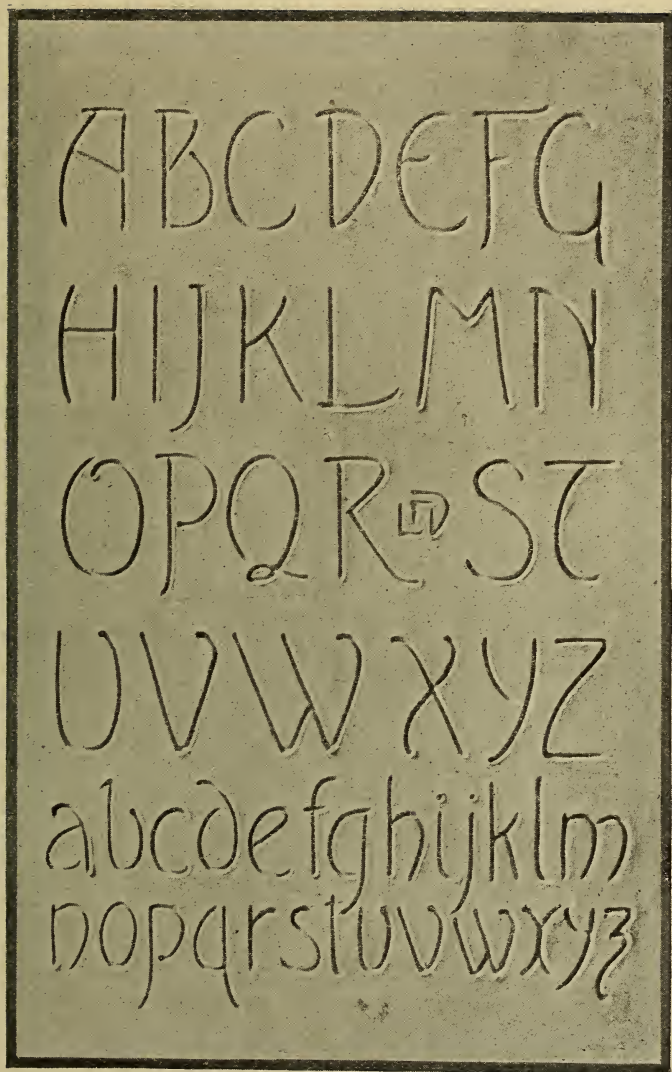 ABCDEFG
HIJKLMN
OPQRST
UVWXYZ
abcdefghijklm
nopqrstuvwxyz